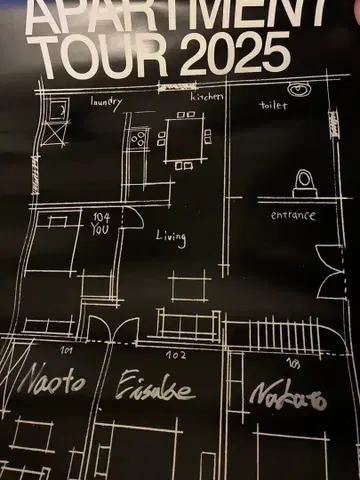 APARTMENT
TOUR 2025
laundry
kitchen
toilet
104
YOU
Living
entrance
101
102
103
Naoto
Eisuke
Nakato